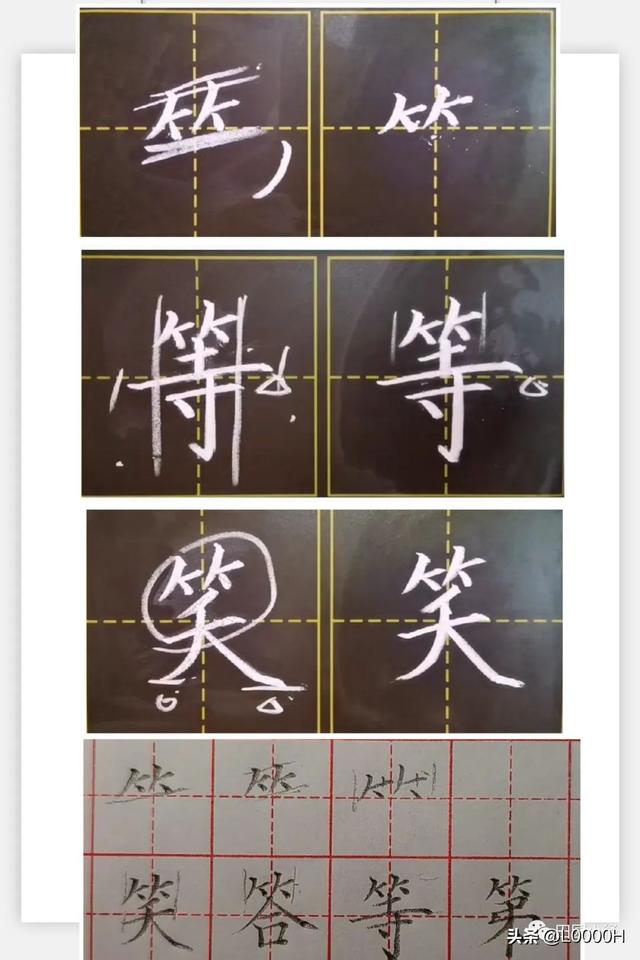 ⺮ ⺮
等 等
笑 笑
⺮ ⺮ ⺮
笑 答 等 第
头条 @L0000H